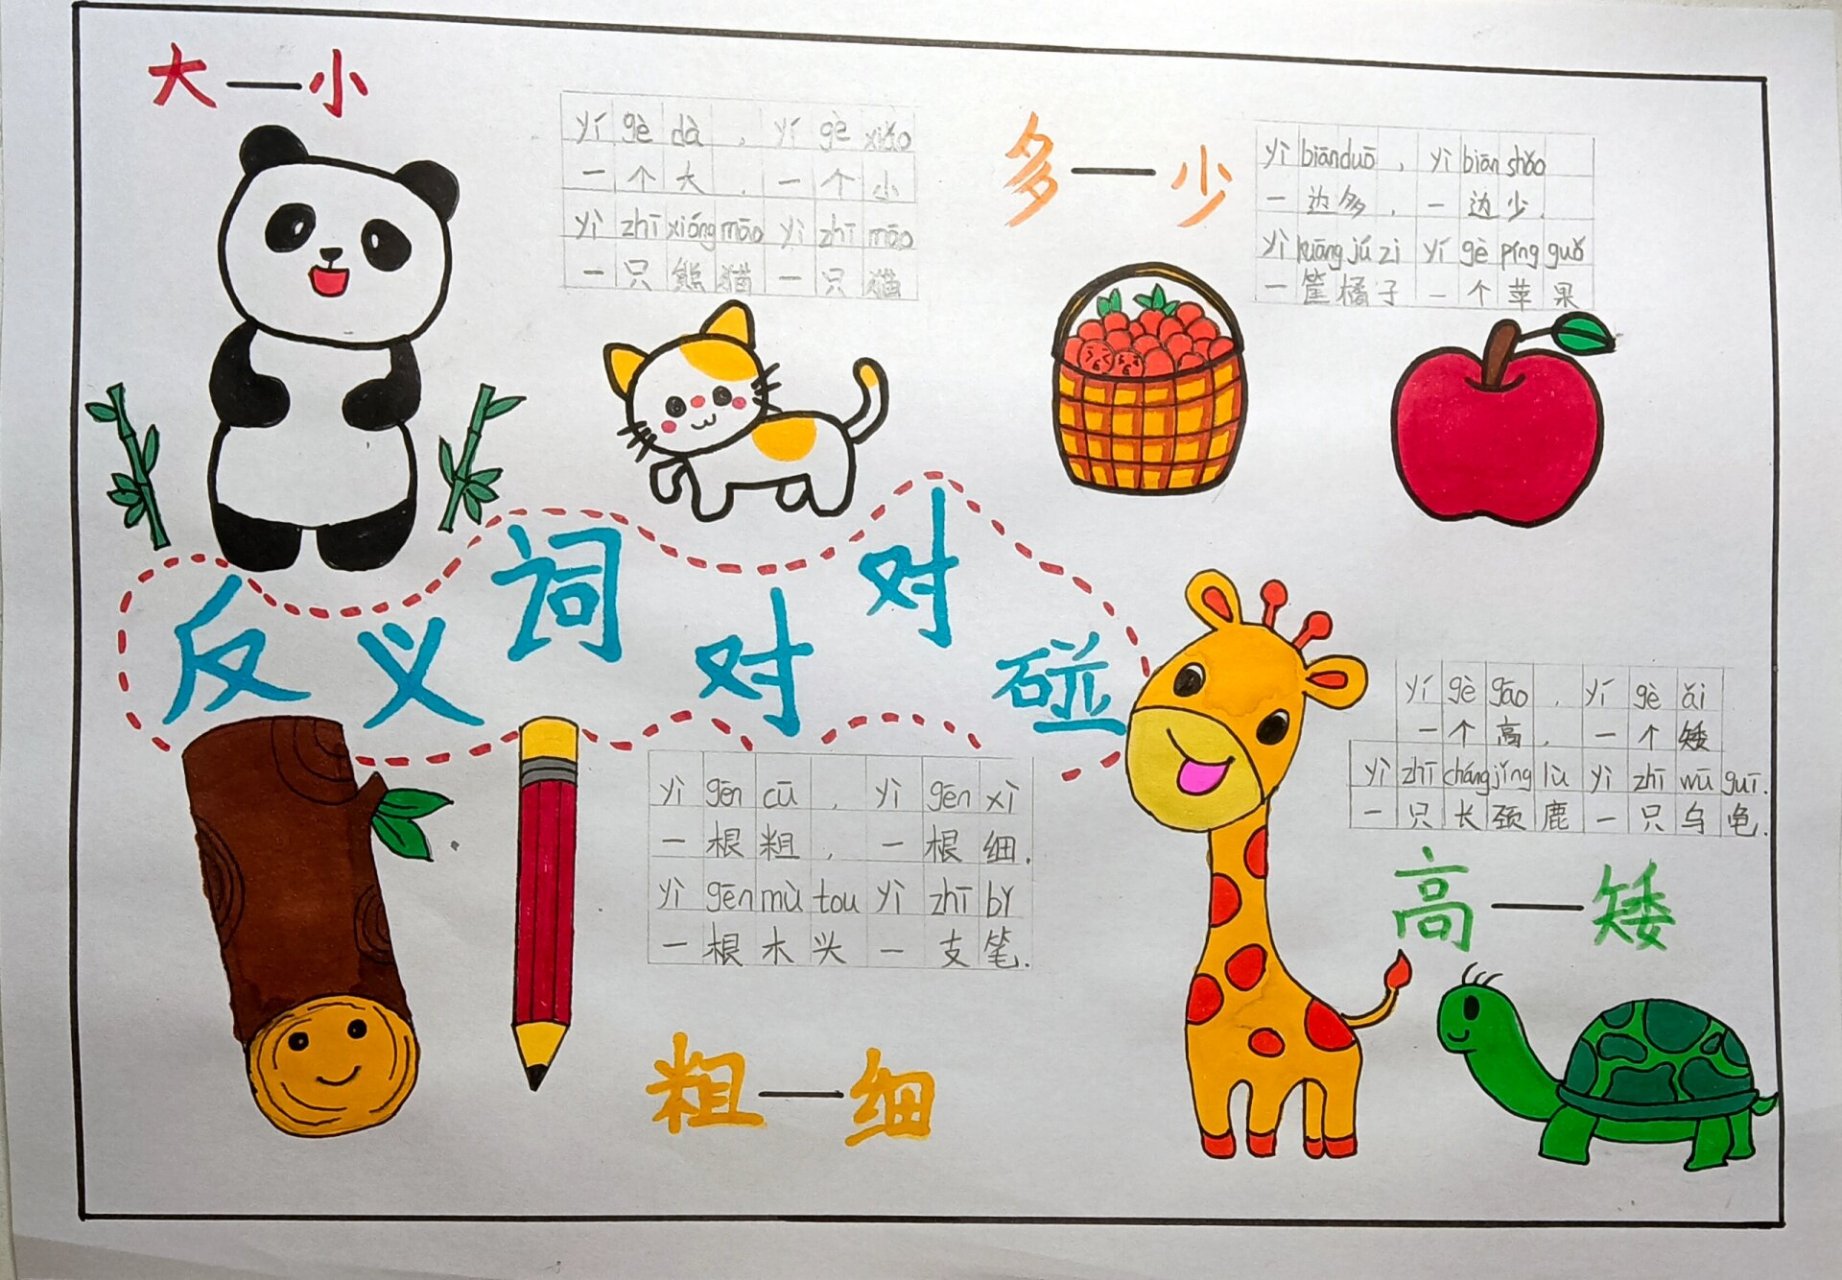 大—小
yí gè dà , yí gè xiǎo
一个大 . 一个小
yì zhī xióng māo yì zhī māo
一只熊猫 一只猫
多—少
yì biān duō , yì biān shǎo
一边多 , 一边少.
yì kuāng jú zi yí gè píng guǒ
一筐橘子 一个苹果
反义词对对碰
yì gēn cū , yì gēn xì
一根粗 , 一根细.
yì gēn mù tou yì zhī bǐ
一根木头 一支笔.
粗—细
yí gè gāo , yí gè ǎi
一个高 , 一个矮
yì zhī cháng jǐng lù yì zhī wū guī.
一只长颈鹿 一只乌龟.
高—矮